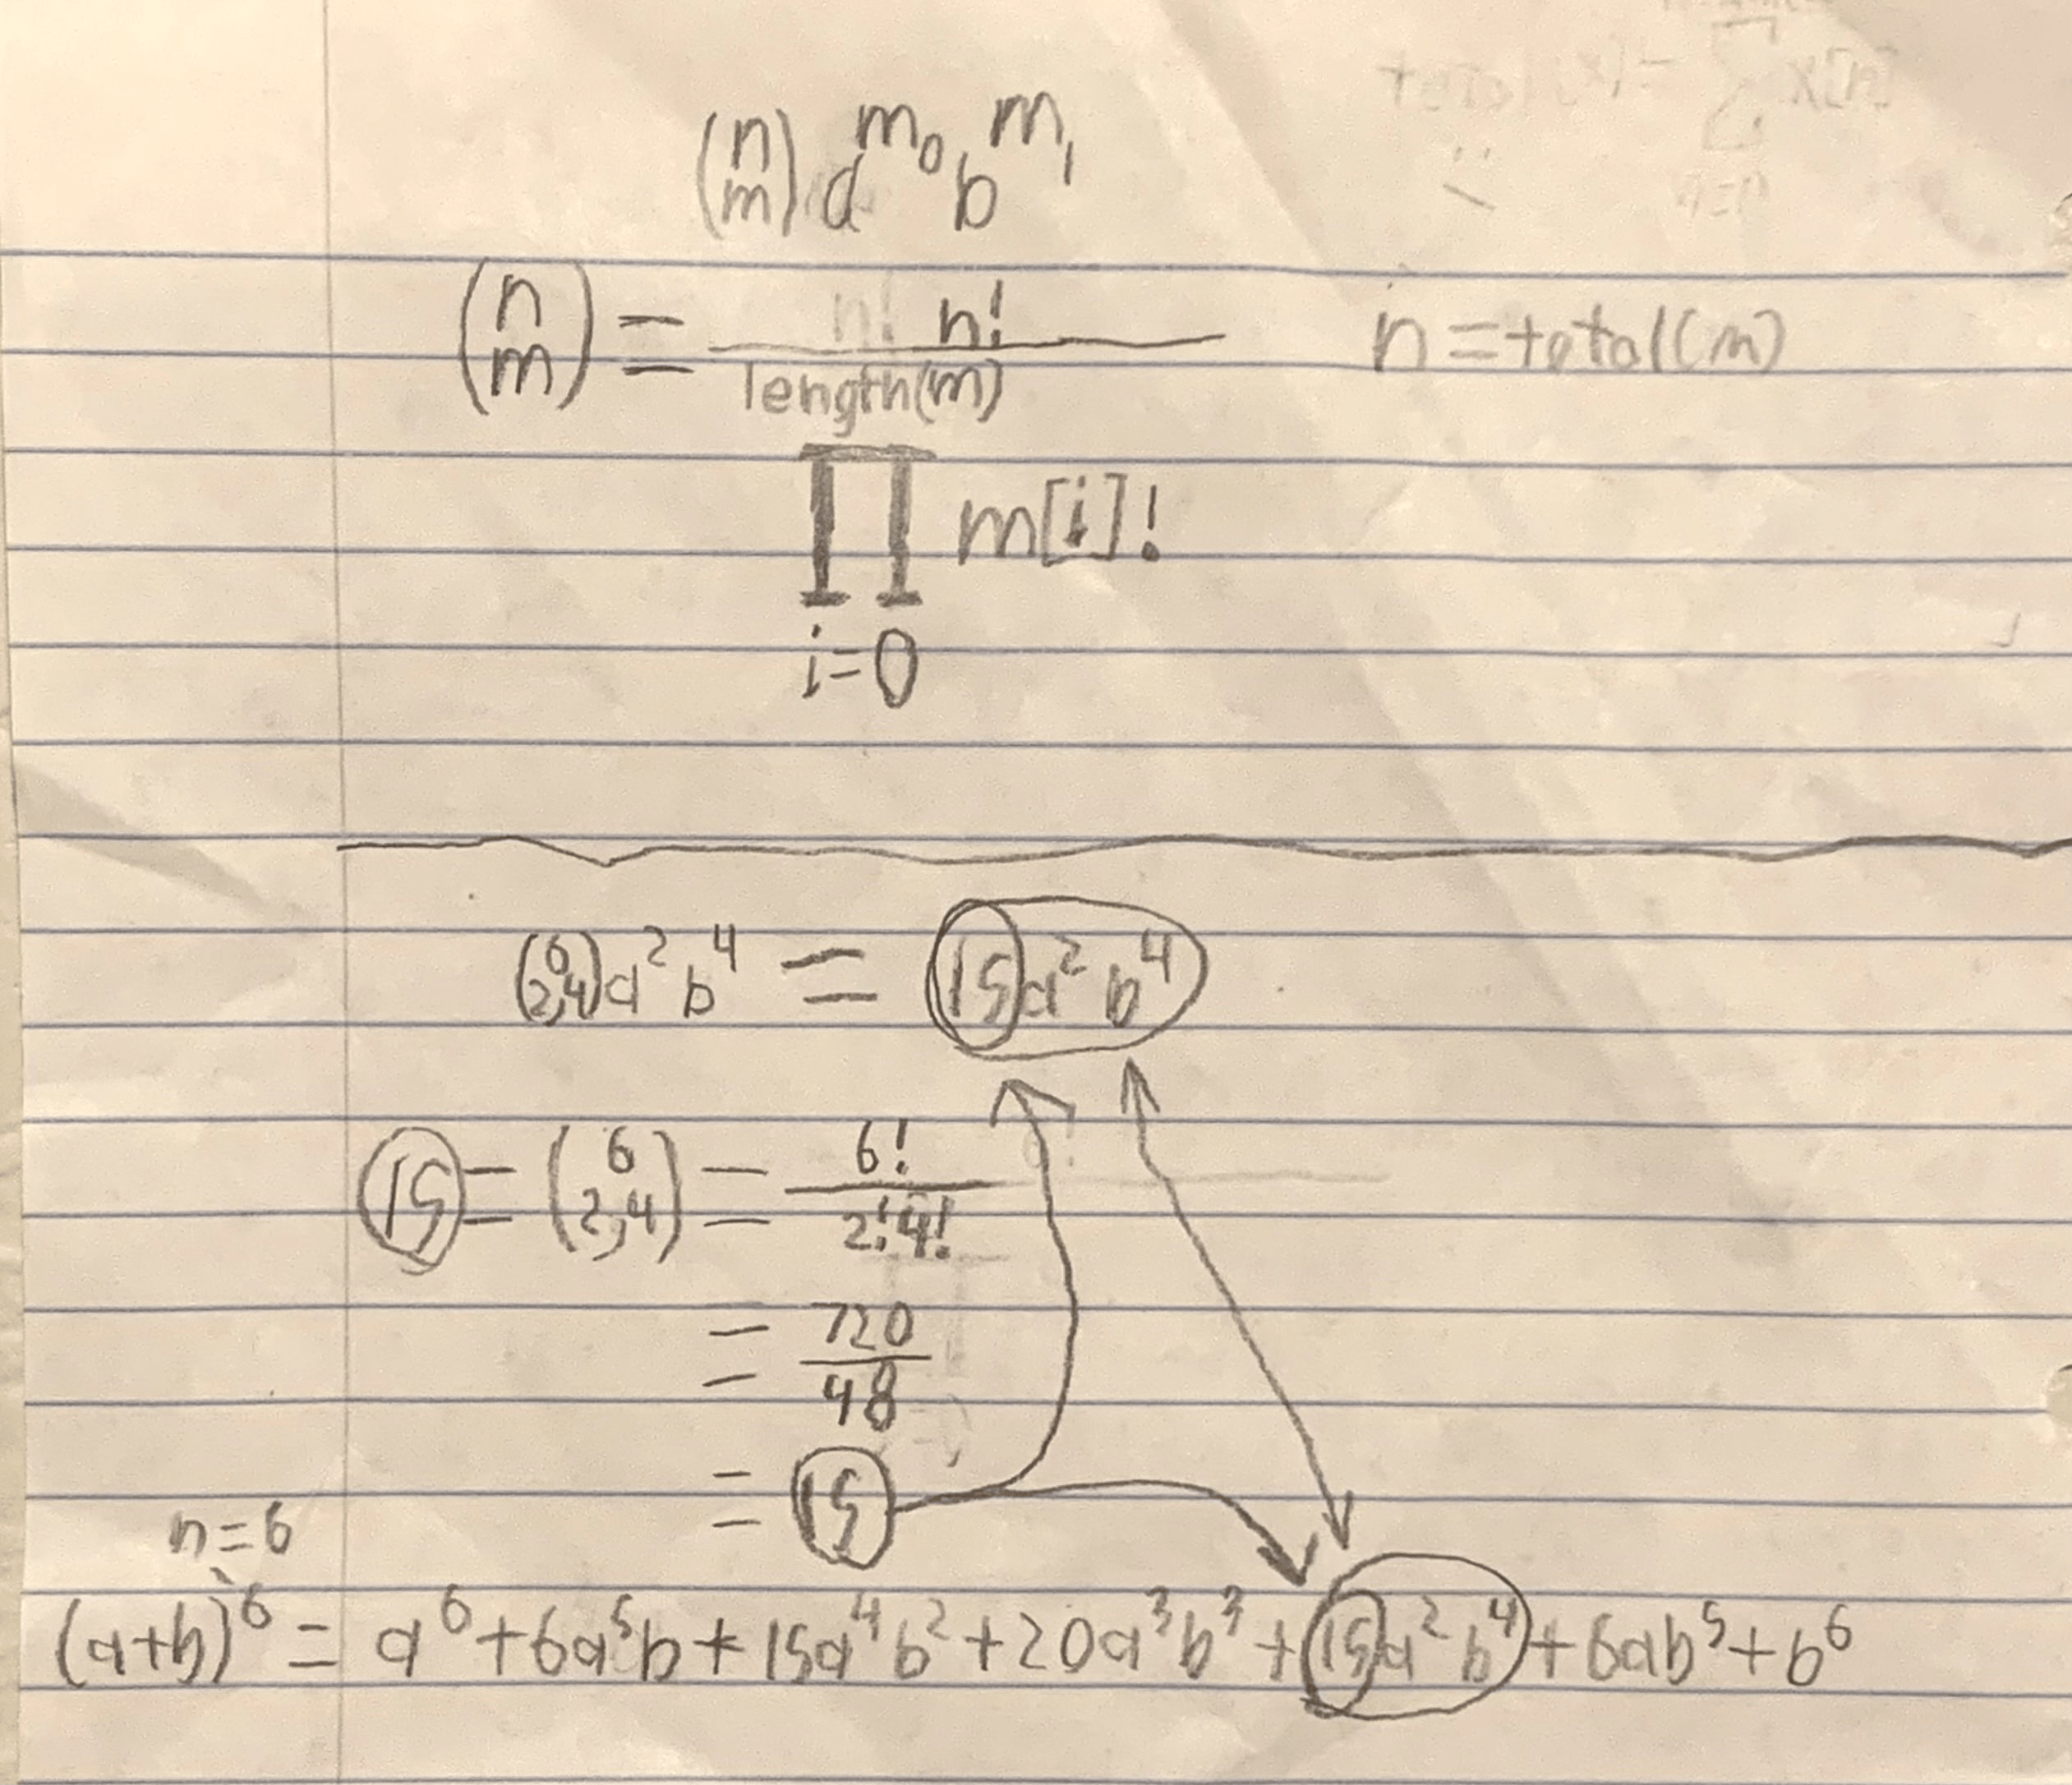 total(x) = Σ x[n]
n=0
(n m) a^m₀ b^m₁
(n m) = n! / length(m) ∏ i=0 m[i]! n = total(m)
(6 2,4) a² b⁴ = 15a² b⁴
15 = (6 2,4) = 6! / 2!4!
= 720 / 48
= 15
n=6
(a+b)⁶ = a⁶+6a⁵b+15a⁴b²+20a³b³+15a²b⁴+6ab⁵+b⁶